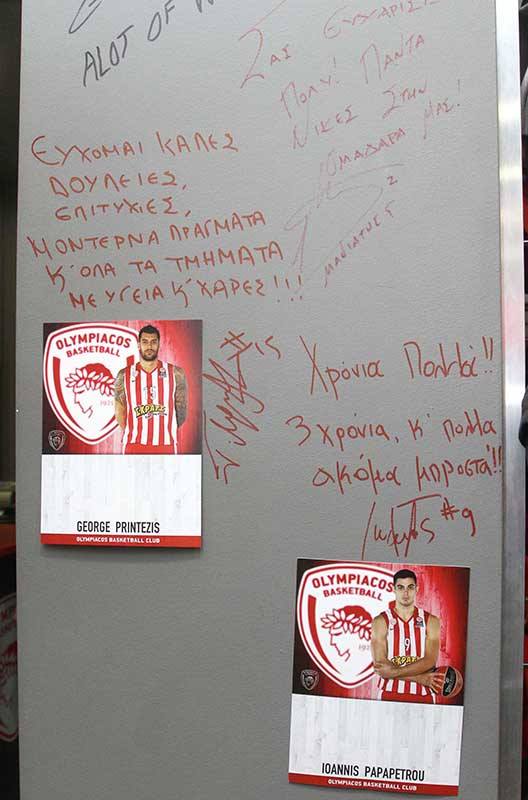 ALOT OF
ΣΑΣ ΕΥΧΑΡΙΣΤ
ΠΟΛΥ! ΠΑΝΤΑ
ΝΙΚΕΣ ΣΤΗΝ
ΟΜΑΔΑΡΑ ΜΑΣ!
2
ΕΥΧΟΜΑΙ ΚΑΛΕΣ
ΔΟΥΛΕΙΕΣ,
ΕΠΙΤΥΧΙΕΣ,
ΜΟΝΤΕΡΝΑ ΠΡΑΓΜΑΤΑ
Κ' ΟΛΑ ΤΑ ΤΜΗΜΑΤΑ
ΜΕ ΥΓΕΙΑ Κ' ΧΑΡΕΣ!!!
#15
OLYMPIACOS
BASKETBALL
1925
GEORGE PRINTEZIS
OLYMPIACOS BASKETBALL CLUB
Χρόνια Πολλά!!
3 χρόνια, κ' πολλα
ακόμα μπροστά!!
#9
OLYMPIACOS
BASKETBALL
9
IOANNIS PAPAPETROU
OLYMPIACOS BASKETBALL CLUB